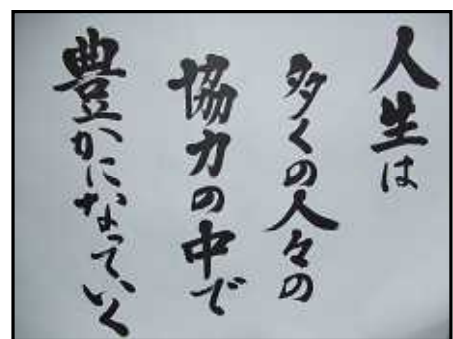 人生は
多くの人々の
協力の中で
豊かになっていく